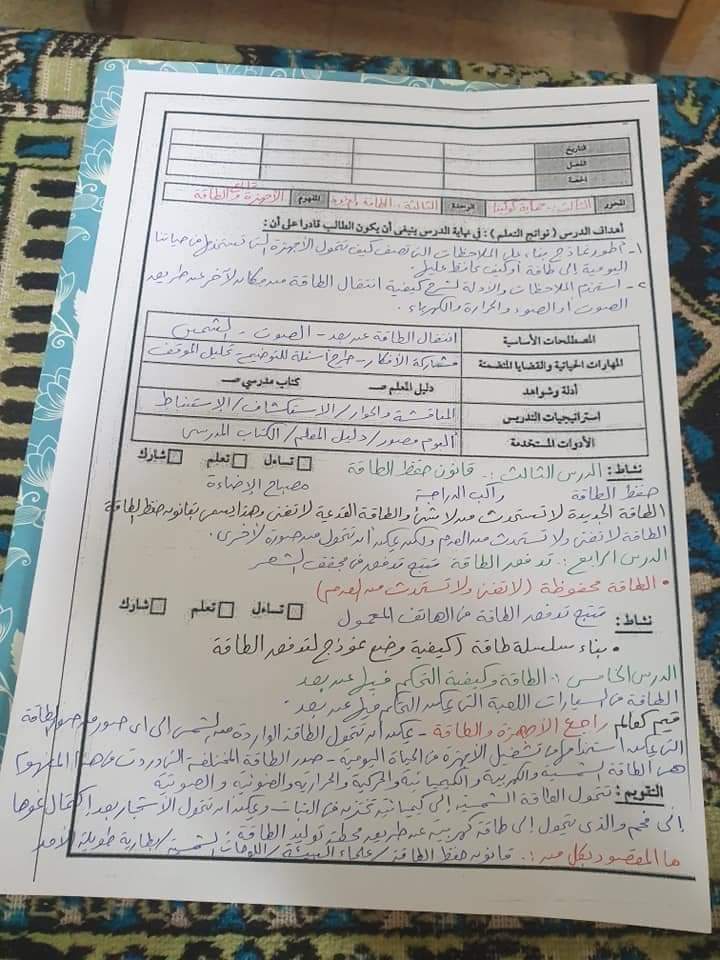 التاريخ
الفصل
الحصة
المحور الثالث: حماية كوكبنا الوحدة الثالثة: الطاقة المفهوم الأجهزة والطاقة
أهداف الدرس ( نواتج التعلم ) : في نهاية الدرس ينبغي أن يكون الطالب قادرا على أن :
١- أطور نماذج بناء على الملاحظات التى تصف كيف تتحول الأجهزة التى نستخدمها فى حياتنا
اليومية إلى طاقة أو كيف نحافظ عليها.
٢- استخدم الملاحظات والأدلة لشرح كيفية انتقال الطاقة من مكان لآخر عن طريق
الصوت أو الضوء والحرارة والكهرباء.
المصطلحات الأساسية انتقال الطاقة عن بعد - الصوت - الشمس
المهارات الحياتية والقضايا المتضمنة مشاركة الأفكار - طرح أسئلة للتوضيح - تحليل الموقف
أدلة وشواهد دليل المعلم صـ كتاب مدرسي صـ
استراتيجيات التدريس المناقشة والحوار / الاستكشاف / الاستنباط
الأدوات المستخدمة البوم مصور / دليل المعلم / الكتاب المدرسى
نشاط : الدرس الثالث :. قانون حفظ الطاقة تساءل تعلم شارك
حفظ الطاقة راكب الدراجة مصباح الإضاءة
الطاقة الجديدة لا تستحدث من لا شئ والطاقة القديمة لا تفنى وهذا يسمى بقانون حفظ الطاقة
الطاقة لا تفنى ولا تستحدث من العدم ولكن يمكن أن تتحول من صورة لأخرى.
الدرس الرابع :. تدفق الطاقة تتبع تدفق فى مجفف الشعر
• الطاقة محفوظة (لا تفنى ولا تستحدث من العدم)
نشاط : تتبع تدفق الطاقة فى الهاتف المحمول تساءل تعلم شارك
• بناء سلسلة طاقة (كيفية وضع نموذج لتدفق الطاقة
الدرس الخامس :. الطاقة وكيفية التحكم فيها عن بعد
الطاقة فى السيارات اللعبة التى يمكن التحكم فيها عن بعد.
قيم كعالم راجع الأجهزة والطاقة - يمكن أن تتحول الطاقة الواردة من الشمس الى اى صورة من صور الطاقة
التى يمكن استخدامها فى تشغيل الأجهزة فى الحياة اليومية - صور الطاقة المختلفة التى وردت فى هذا المفهوم
هى الطاقة الشمسية والكهربية والكيميائية والحركية والحرارية والضوئية والصوتية
التقويم : تتحول الطاقة الشمسية إلى كيميائية تخزن فى النبات ويمكن أن تتحول الأشجار بعد اكتمال نموها
إلى فحم والذى يتحول إلى طاقة كهربية عن طريق محطة توليد الطاقة
ما المقصود بكل من :. قانون حفظ الطاقة / علماء البيئة / اللوحات الشمسية / بطارية طويلة الأمد